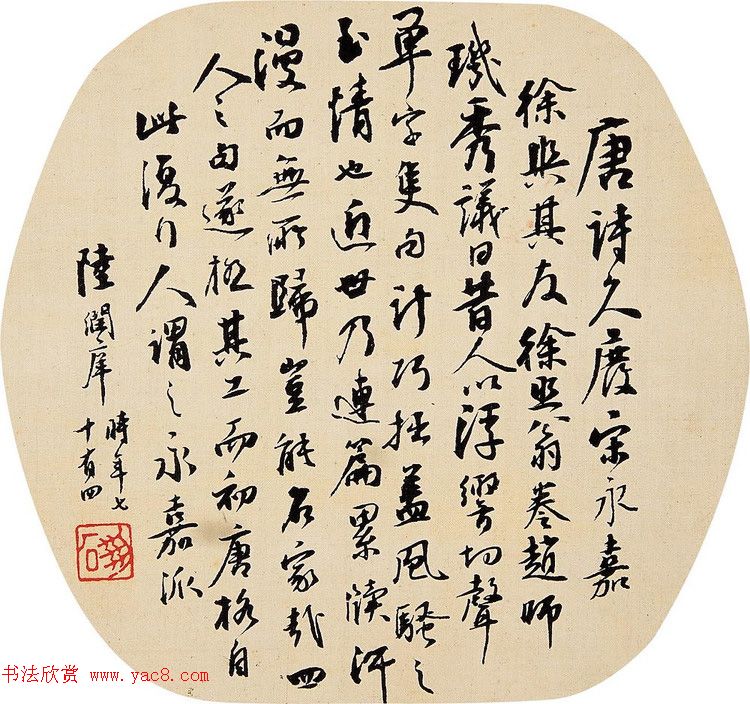 唐詩久廢宋永嘉
徐與其友徐照翁卷趙師
璣秀議曰昔人以浮響切聲
單字隻句計巧拙蓋風騷之
至情也近世乃連篇累牘汗
漫而無所歸豈能名家哉四
人之句遂極其工而初唐格自
此復行人謂之永嘉派
陸潤庠時年七
十有四
书法欣赏 www.yac8.com